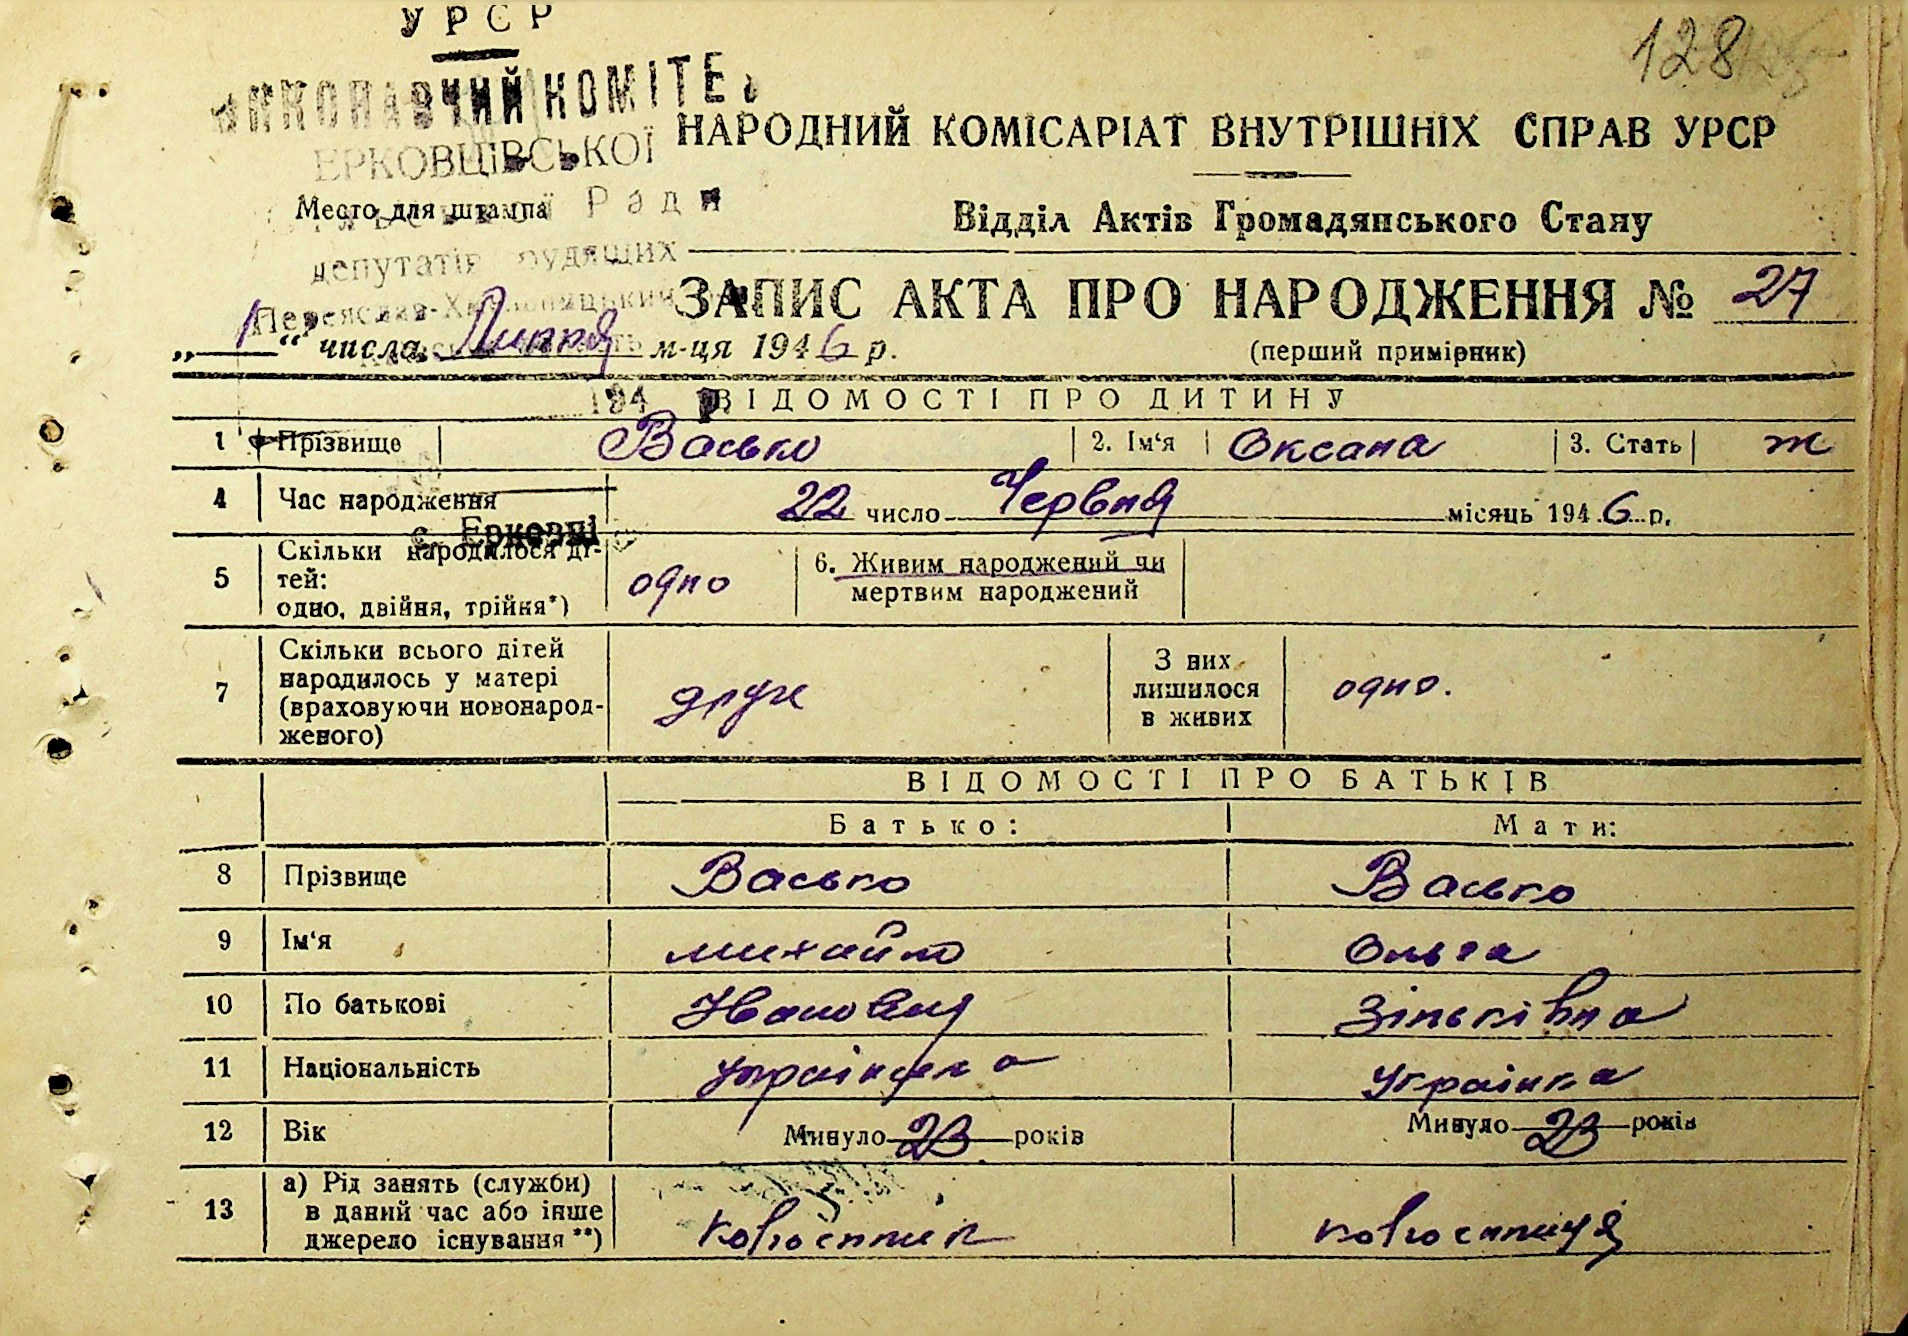 УРСР
128
ВИКОНАВЧИЙ КОМІТЕТ
НАРОДНИЙ КОМІСАРІАТ ВНУТРІШНІХ СПРАВ УРСР
ЕРКОВЦІВСЬКОЇ
Место для штампа
Ради
Відділ Актів Громадянського Стану
депутатів трудящих
ЗАПИС АКТА ПРО НАРОДЖЕННЯ № 27
Переяслав-Хмельницький
„ 1 “ числа Липня м-ця 1946 р.
(перший примірник)
194 р.
ВІДОМОСТІ ПРО ДИТИНУ
1 Прізвище Васько 2. Ім‘я Оксана 3. Стать ж
4 Час народження 22 число Червня місяць 1946 р.
с. Ерковці
5 Скільки народилося ді-
тей:
одно, двійня, трійня*)
одно
6. Живим народжений чи
мертвим народжений
7 Скільки всього дітей
народилось у матері
(враховуючи новонарод-
женого)
друге
З них
лишилося
в живих
одно.
ВІДОМОСТІ ПРО БАТЬКІВ
Батько: Мати:
8 Прізвище Васько Васько
9 Ім‘я Михайло Ольга
10 По батькові Іванович Зіньківна
11 Національність Українець Українка
12 Вік Минуло 23 років Минуло 23 років
13 а) Рід занять (служби)
в даний час або інше
джерело існування**)
колгоспник колгоспниця